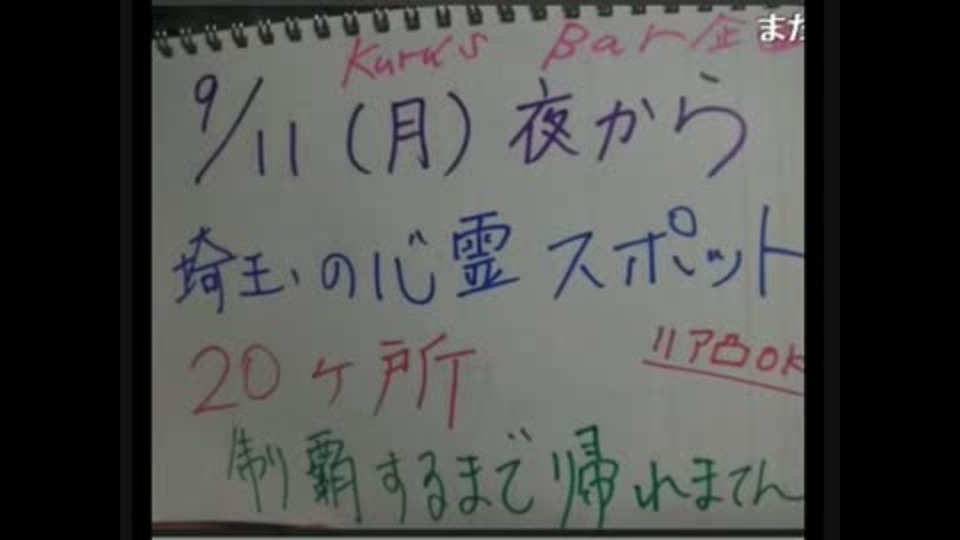 Kuru's Bar企画
また
9/11(月)夜から
埼玉の心霊スポット
20ヶ所
リア凸OK
制覇するまで帰れません